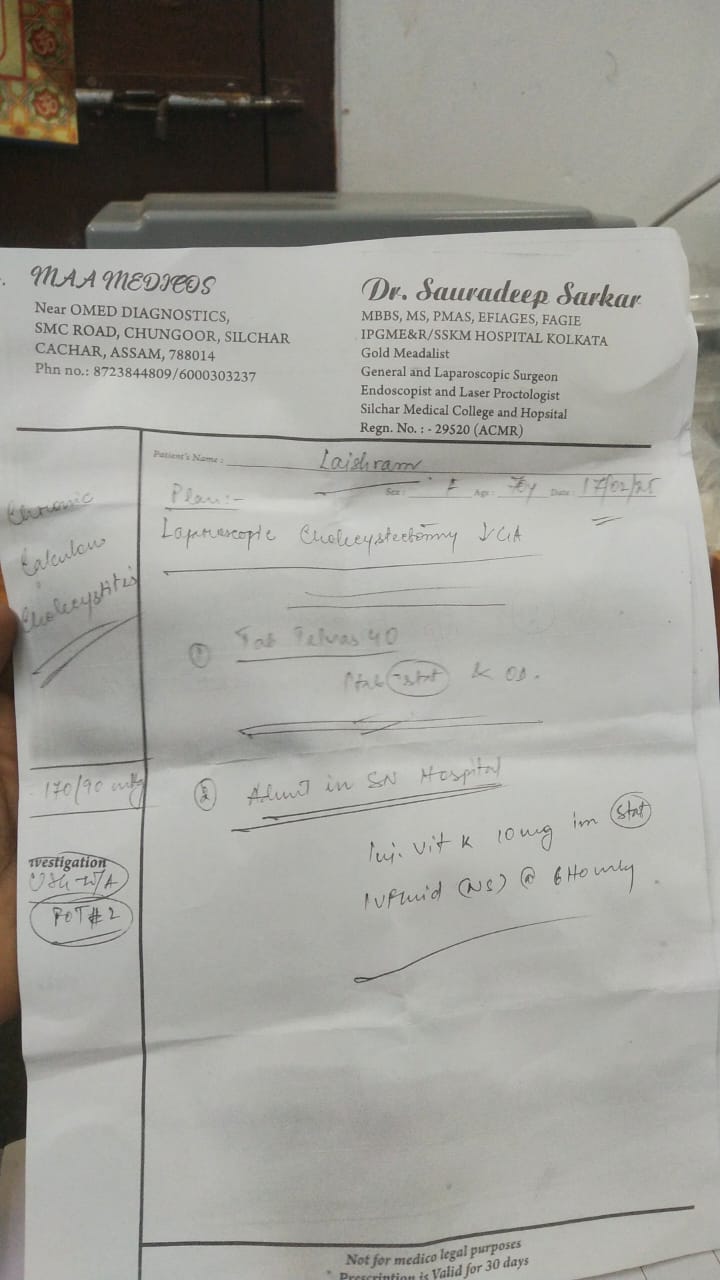 MAA MEDICOS
Near OMED DIAGNOSTICS,
SMC ROAD, CHUNGOOR, SILCHAR
CACHAR, ASSAM, 788014
Phn no.: 8723844809/6000303237
Dr. Sauradeep Sarkar
MBBS, MS, PMAS, EFIAGES, FAGIE
IPGME&R/SSKM HOSPITAL KOLKATA
Gold Meadalist
General and Laparoscopic Surgeon
Endoscopist and Laser Proctologist
Silchar Medical College and Hopsital
Regn. No. : - 29520 (ACMR)
Patient's Name : Laishram
Sex : F Age : Date : 17/02/25
Chronic
Calculous
Cholecystitis
170/90
vestigation
USG W/A
Plan:-
Laparoscopic Cholecystectomy ↓ GA
① Tab Telvas 40
stat & OD.
② Admit in SN Hospital
Inj. Vit K 10mg im stat
IVFluid (NS) @ 6Hourly
Not for medico legal purposes
* Prescription is Valid for 30 days